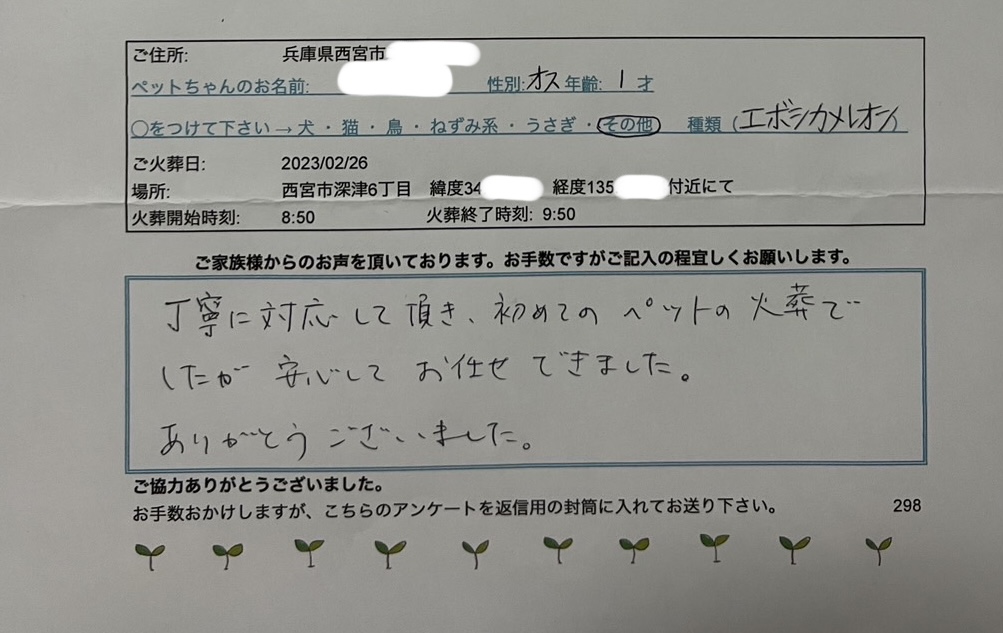 ご住所: 兵庫県西宮市
ペットちゃんのお名前: 性別:オス 年齢: 1 才
○をつけて下さい→犬・猫・鳥・ねずみ系・うさぎ・その他 種類(エボシカメレオン)
ご火葬日: 2023/02/26
場所: 西宮市深津6丁目 緯度34 経度135 付近にて
火葬開始時刻: 8:50 火葬終了時刻: 9:50
ご家族様からのお声を頂いております。お手数ですがご記入の程宜しくお願いします。
丁寧に対応して頂き、初めてのペットの火葬で
したが安心してお任せできました。
ありがとうございました。
ご協力ありがとうございました。
お手数おかけしますが、こちらのアンケートを返信用の封筒に入れてお送り下さい。 298